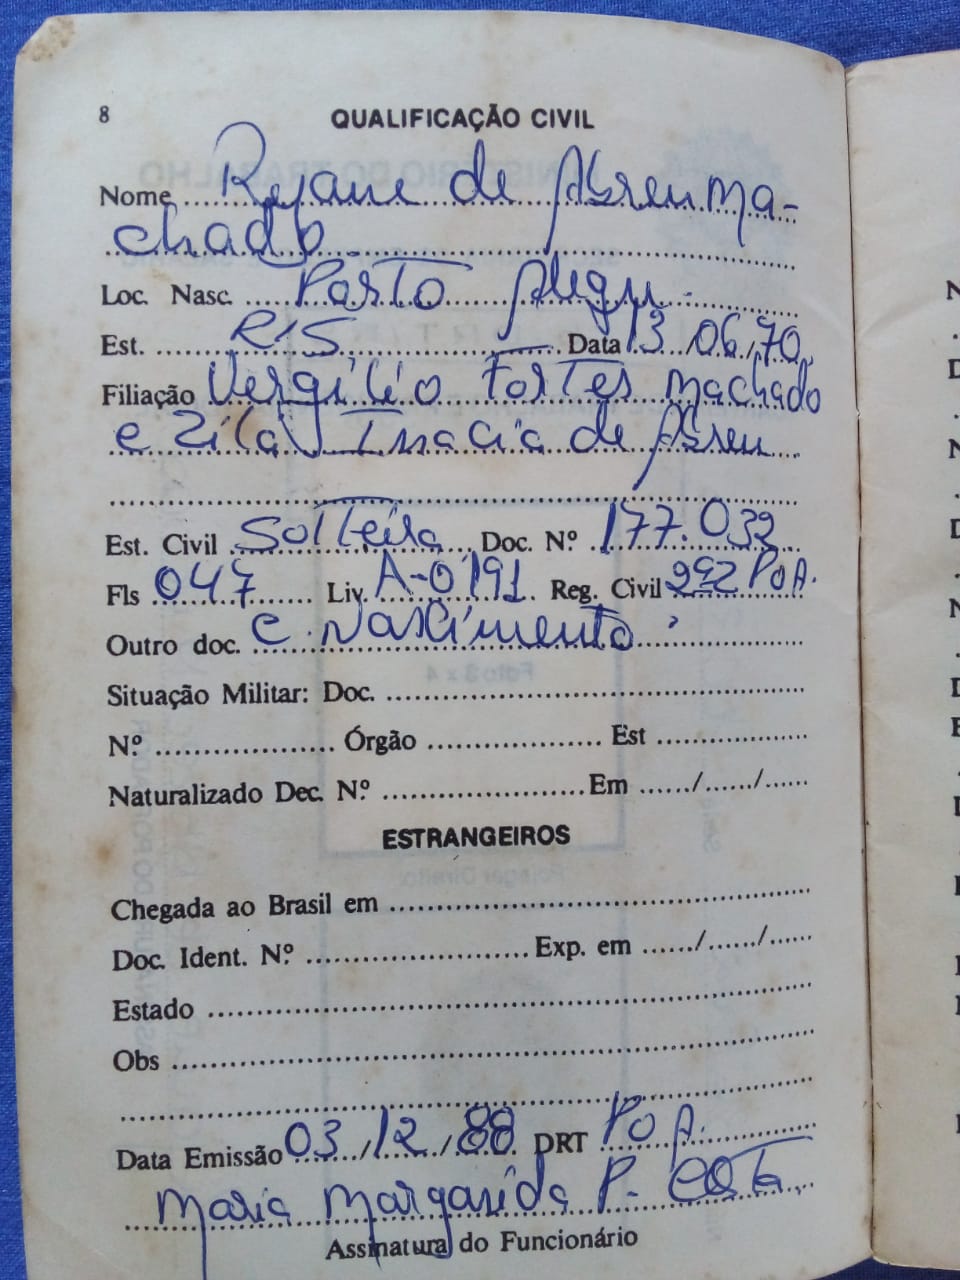 8
QUALIFICAÇÃO CIVIL
Nome Rejane de Abreu Ma-
chado
Loc. Nasc. Porto Alegre
Est. RS Data 13 06 70
Filiação Vergílio Fortes Machado
e Zila Inacia de Abreu
Est. Civil Solteira Doc. N.º 177.032
Fls 047 Liv. A-0191 Reg. Civil 2ª Z POA.
Outro doc. C. Nascimento
Situação Militar: Doc.
N.º Órgão Est
Naturalizado Dec. N.º Em / /
ESTRANGEIROS
Chegada ao Brasil em
Doc. Ident. N.º Exp. em / /
Estado
Obs
Data Emissão 03 / 12 / 88 DRT POA.
Maria Margarida P.
Assinatura do Funcionário